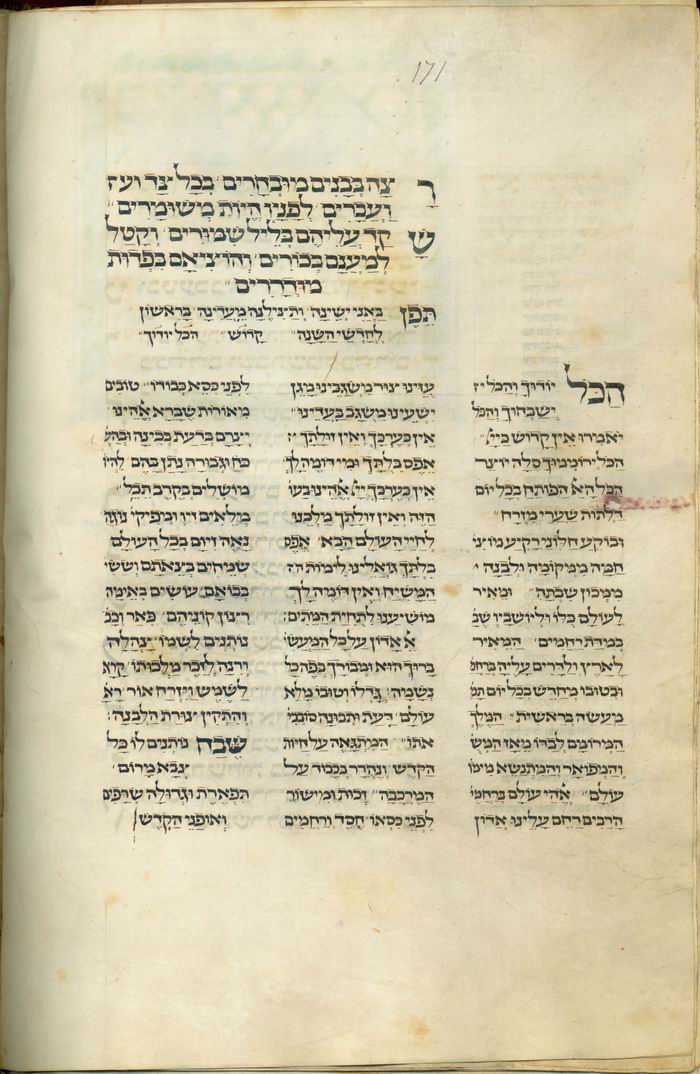 171
רצה בבנים מובחרים בכל צד ועז
ועברים לפניו היות משומרים
שקד עליהם בליל שמורים וקטל
למענם בכורים והוציאם בפרות
מוהדרים
תפן באני ישינה ותצילנה מעדינה בראשון
לחדשי השנה קדוש הכל יודוך
הכל יודוך והכל יז
ישבחוך והכל
יאמרו אין קדוש כיי׳
הכל ירוממוך סלה יוצר
הכל הא הפותח בכל יום
דלתות שערי מזרח
ובוקע חלוני רקיע מוציי
חמה ממקומה ולבנה י
ממכון שבתה ומאיר
לעולם כלו וליושביו שב
במדת רחמים המאיר
לארץ ולדרים עליה ברחמ
ובטובו מחדש בכל יום תמ
מעשה בראשית המלך
המרומם לבדו מאז המש
והמפואר והמתנשא מימו
עולם אלהי עולם ברחמי
הרבים רחם עלינו אדון
עוזינו צור משגבינו מגן
ישעינו משגב בעדינו
אין כערכך ואין זולתך ז
אפס בלתך ומי דומה לך
אין כערכך יי׳ אלהינו בעו
הזה ואין זולתך מלכנו
לחיי העולם הבא אפס
בלתך גואלינו לימות הז
המשיח ואין דומה לך
מושיענו לתחית המתים׃
אל אדון על כל המעשי
ברוך הוא ומבורך בפה כל
נשמה גדלו וטובו מלא
עולם דעת ותבונה סובבי
אתו המתגאה על חיות
הקדש ונהדר בכבוד על
המרכבה זכות ומישור
לפני כסאו חסד ורחמים
לפני כסא כבודו טובים
מאורות שברא אלהינו
יצרם בדעת בבינה ובהש
כח וגבורה נתן בהם להיו
מושלים בקרב תבל
מלאים זיו ומפיקי נוגה
נאה זיום בכל העולם
שמחים בצאתם וששי
בבואם עושים באימה
רצון קוניהם פאר וכב
נותנים לשמו צהלה
ורנה לזכר מלכותו קרא
לשמש ויזרח אור ראה
והתקין צורת הלבנה׃
שבח נותנים לו כל
צבא מרום
תפארת וגדולה שרפים
ואופני הקדש